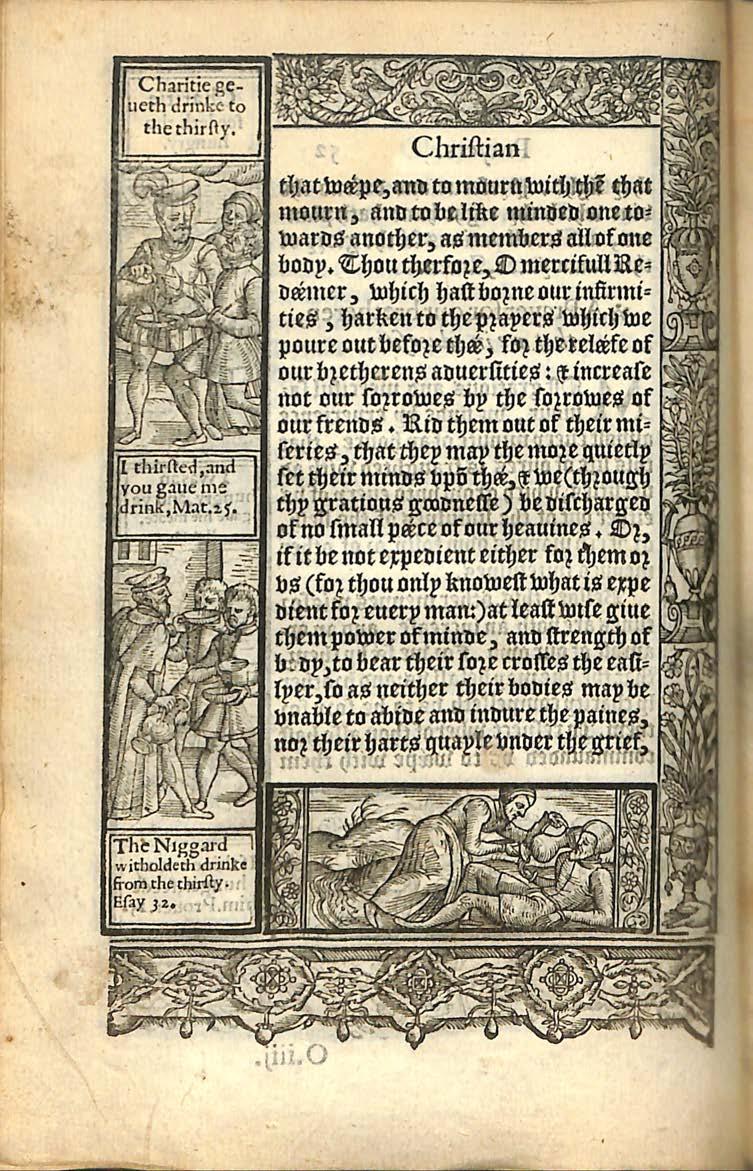 Charitie ge-
ueth drinke to
the thirsty.
Christian
that wéepe, and to mourn with thē that
mourn, and to be like minded one to-
wards another, as members all of one
body. Thou therfore, O mercifull Re-
déemer, which hast borne our infirmi-
ties, harken to the prayers which we
poure out before thée, for the reléefe of
our bretherens aduersities: & increase
not our sorrowes by the sorrowes of
our frends. Rid them out of their mi-
series, that they may the more quietly
set their minds vpō thée, & we (through
thy gratious goodnesse) be discharged
of no small péece of our heauines. Or,
if it be not expedient either for them or
vs (for thou only knowest what is expe
dient for euery man:) at least wise giue
them power of minde, and strength of
body, to bear their sore crosses the easi-
lyer, so as neither their bodies may be
vnable to abide and indure the paines,
nor their harts quayle vnder the grief,
I thirsted, and
you gaue me
drink, Mat. 25.
The Niggard
witholdeth drinke
from the thirsty.
Esay 32.